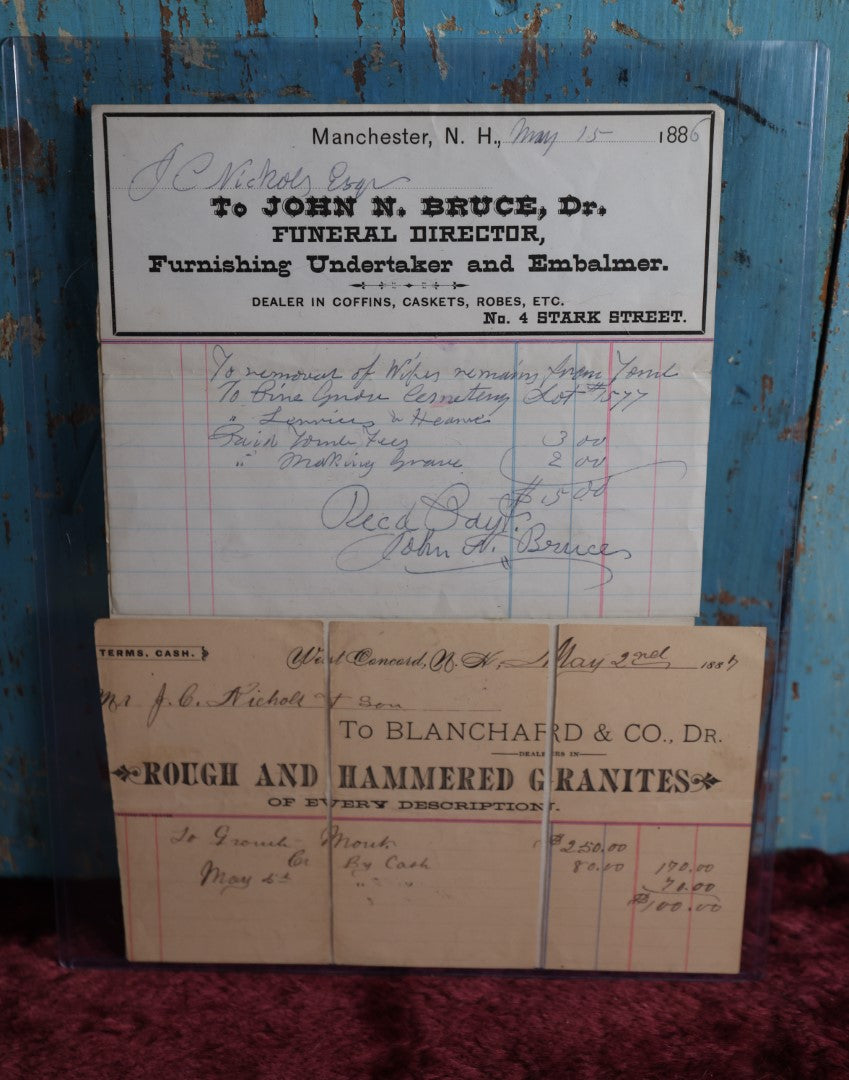 Manchester, N. H., May 15 1886
J C Nichols Esqr
To JOHN N. BRUCE, Dr.
FUNERAL DIRECTOR,
Furnishing Undertaker and Embalmer.
DEALER IN COFFINS, CASKETS, ROBES, ETC.
No. 4 STARK STREET.
To removal of Wifes remains from Tomb
To Pine Grove Cemetery Lot #1577
" & Hearse
Paid Tomb Fees 3 00
" Making Grave 2 00
$15.00
Recd Payt.
John N. Bruce
TERMS, CASH.
West Concord, N. H., May 2nd 1887
Mr J. C. Nichols & Son
To BLANCHARD & CO., Dr.
DEALERS IN
ROUGH AND HAMMERED GRANITES
OF EVERY DESCRIPTION.
To Granite $250.00
Cr By Cash 80.00 170.00
May " " 70.00
$100.00